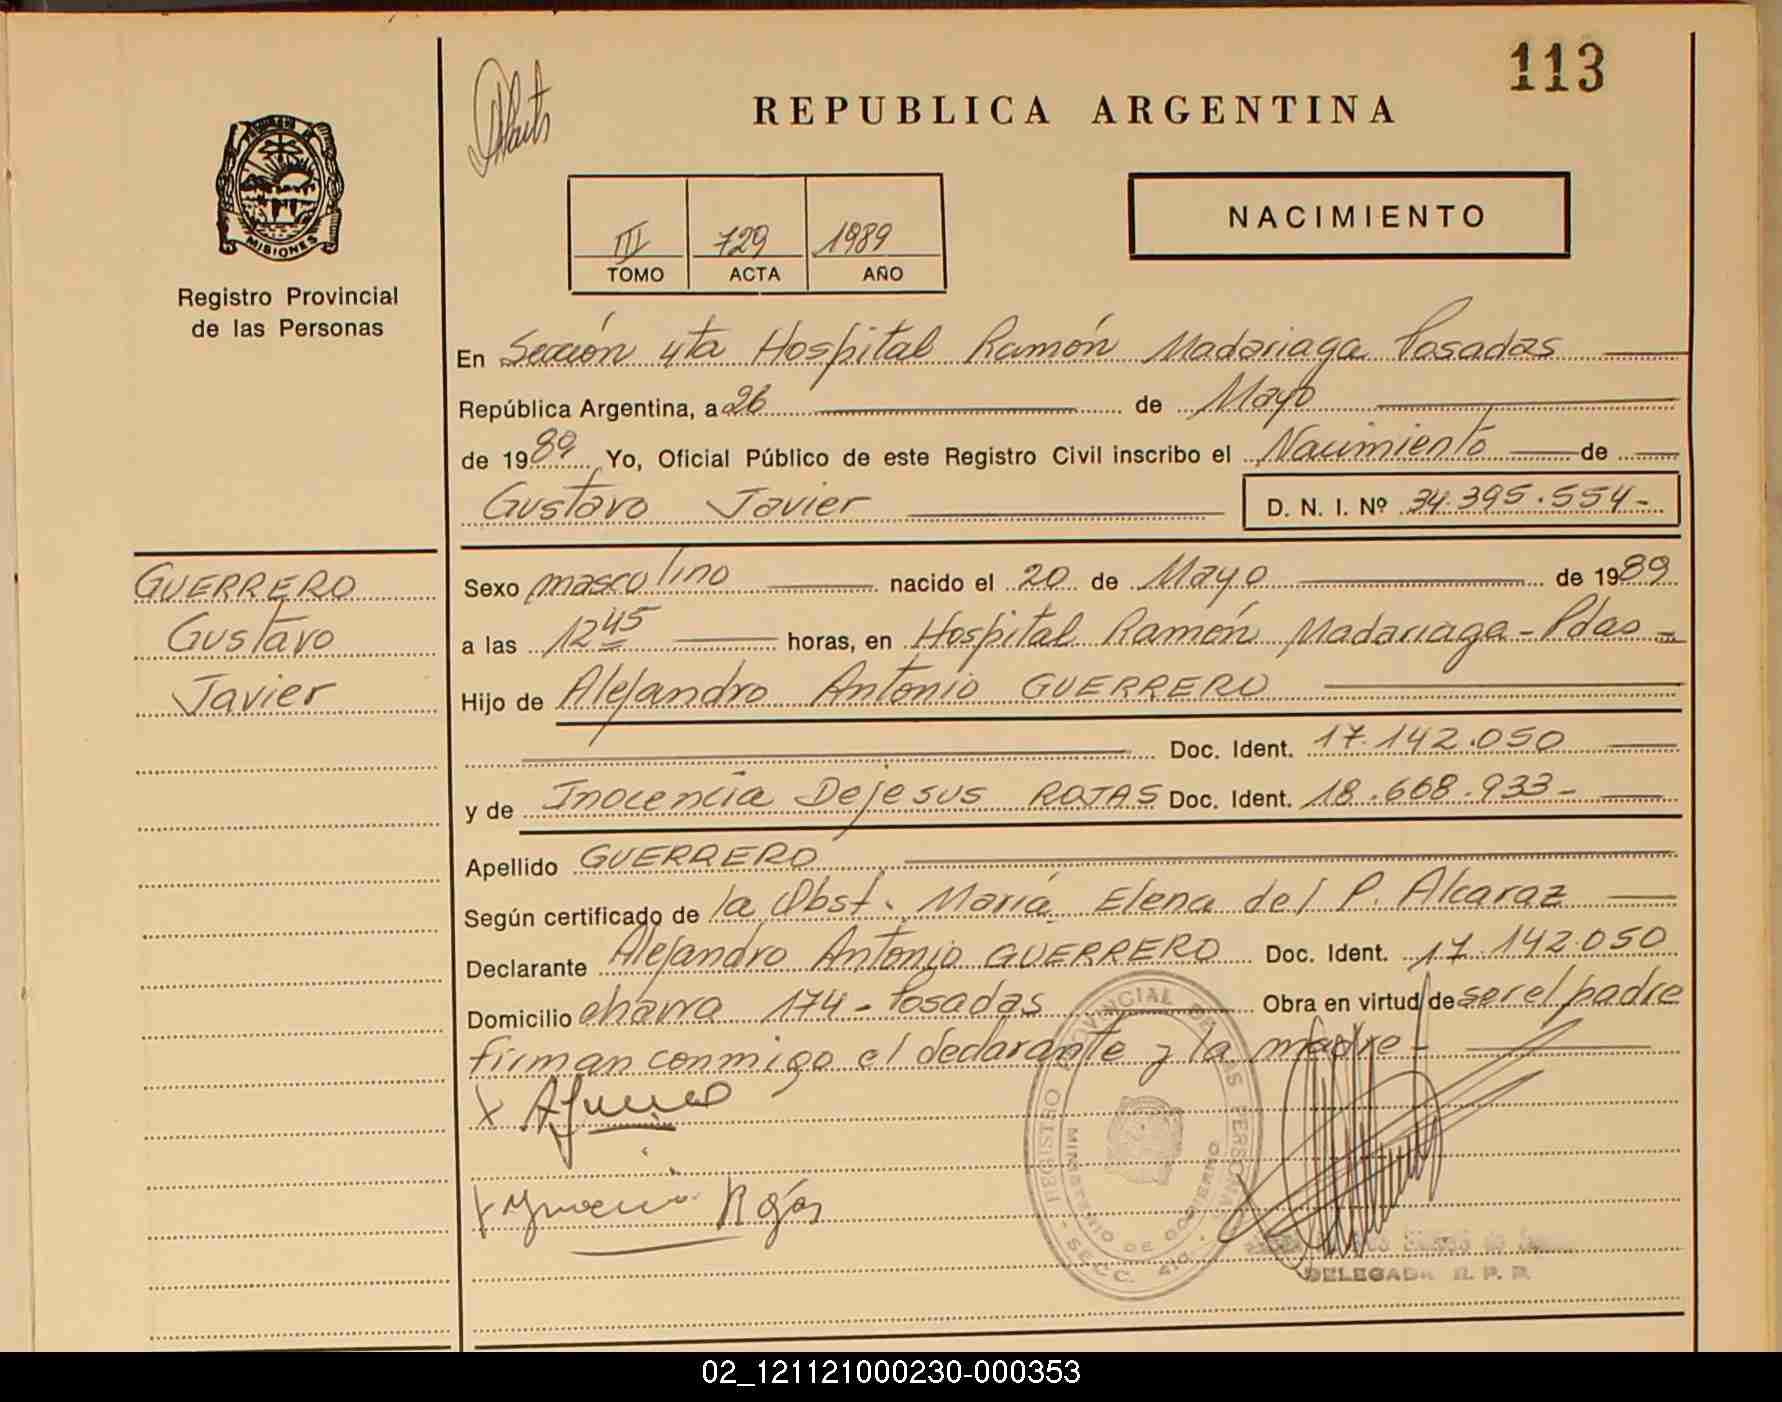 113
REPUBLICA ARGENTINA
MISIONES
Registro Provincial
de las Personas
NACIMIENTO
III 729 1989
TOMO ACTA AÑO
En Sección 4ta Hospital Ramón Madariaga Posadas
República Argentina, a 26 de Mayo
de 1989 Yo, Oficial Público de este Registro Civil inscribo el Nacimiento de
Gustavo Javier D. N. I. Nº 34.395.554-
GUERRERO
Gustavo
Javier
Sexo masculino nacido el 20 de Mayo de 1989
a las 12 45 horas, en Hospital Ramón Madariaga - Pdas -
Hijo de Alejandro Antonio GUERRERO
Doc. Ident. 17.142.050
y de Inocencia Dejesus ROJAS Doc. Ident. 18.668.933-
Apellido GUERRERO
Según certificado de la Obst. María Elena del P. Alcaraz
Declarante Alejandro Antonio GUERRERO Doc. Ident. 17.142.050
Domicilio chacra 174 - Posadas Obra en virtud de ser el padre
firman conmigo el declarante y la madre -
REGISTRO PROVINCIAL DE LAS PERSONAS
MINISTERIO DE GOBIERNO
- SECC. 4ta. -
X
X Rojas
DELEGADA R. P. P.
02_121121000230-000353